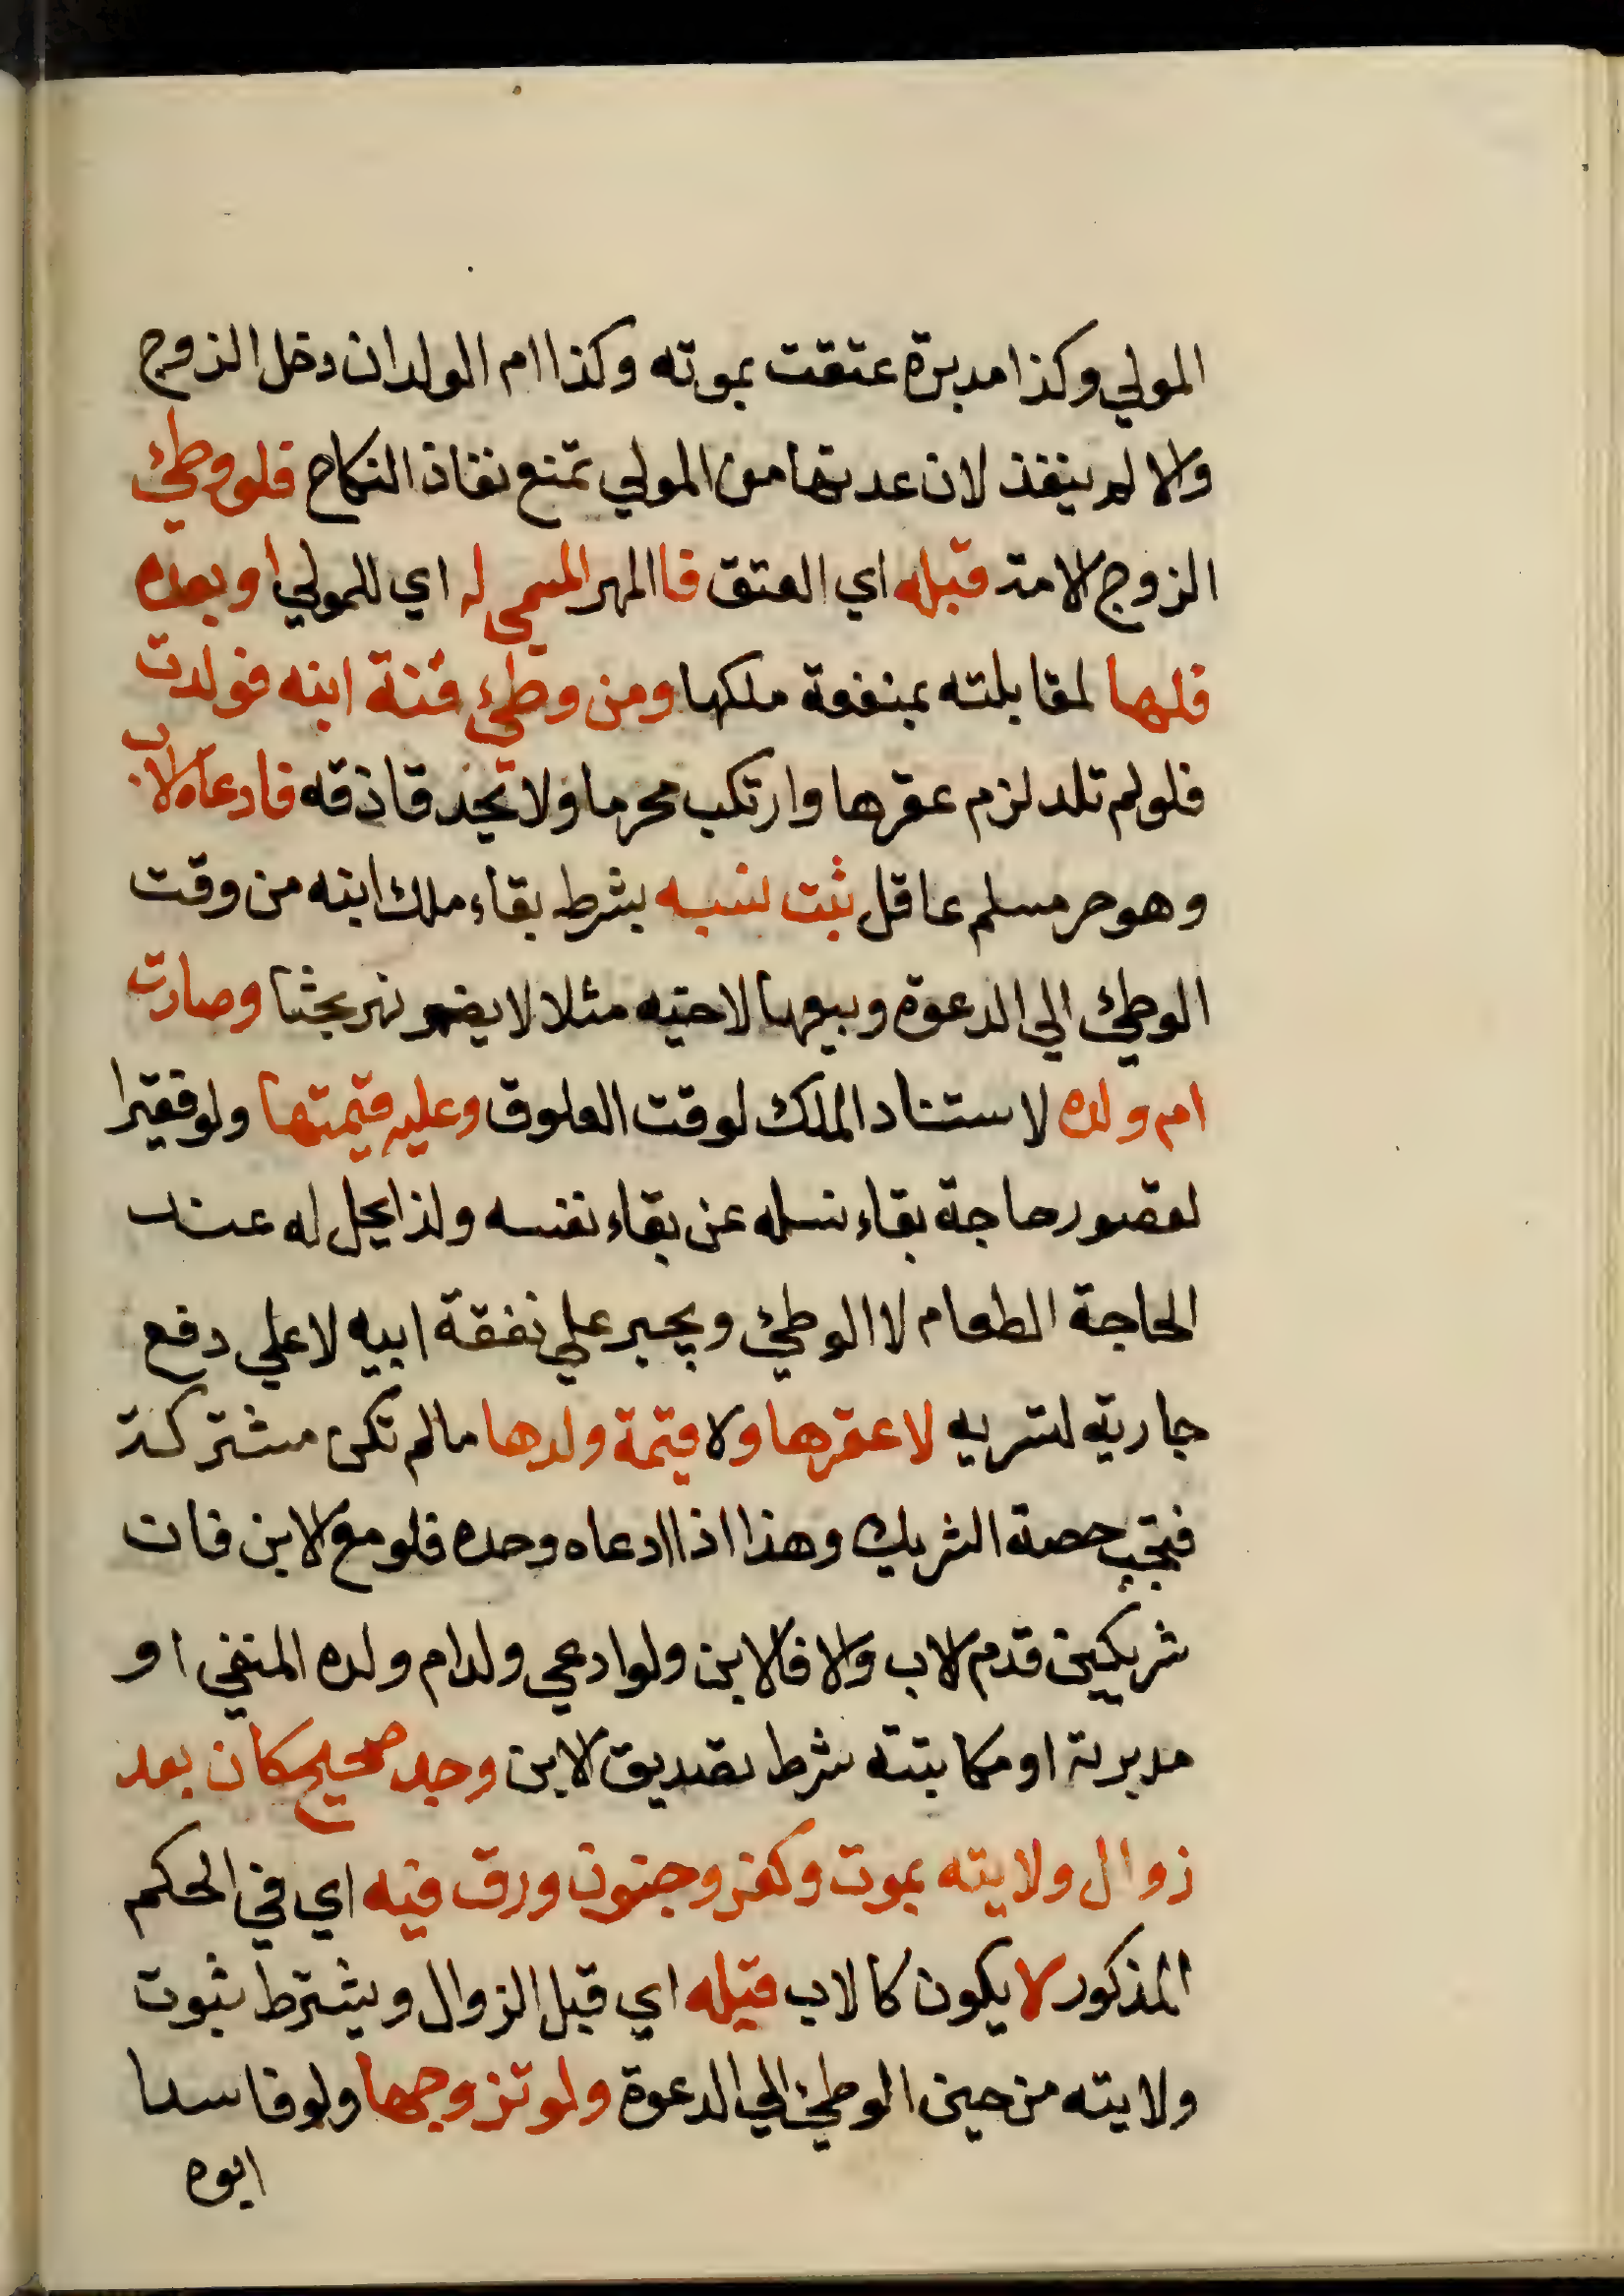 المولي وكذا مدبرة عتقت بموته وكذا ام الولد ان دخل الزوج
والا لم ينفذ لان عدتها من المولي تمنع نفاذ النكاح فلو وطئ
الزوج الامة قبله اي العتق فاالمهر المسمي له اي للمولي او بعده
فلها لمقابلته بمنفعة ملكها ومن وطئ قنة ابنه فولدت
فلو لم تلد لزم عقرها وارتكب محرما ولا تحد قاذقه فادعاه الاب
وهو حر مسلم عاقل ثبت نسبه بشرط بقاء ملك ابنه من وقت
الوطئ الي الدعوة وبيعها لاخيه مثلا لا يضر نهر بحثا وصارت
ام ولده لاستناد الملك لوقت العلوق وعليه قيمتها ولو فقيرا
لقصور حاجة بقاء نسله عن بقاء نفسه ولذا يحل له عند
الحاجة الطعام لا الوطئ ويجبر علي نفقة ابيه لا علي دفع
جاريته لتسريه لا عقرها ولا قيمة ولدها ما لم تكن مشتركة
فتجب حصة الشريك وهذا اذا ادعاه وحده فلو مع الابن فان
شريكين قدم الاب والا فالابن ولو ادعي ولد ام ولده المنفي او
مدبرته او مكاتبته شرط تصديق الابن وجد صحيح كان بعد
زوال ولايته بموت وكفر وجنون ورق فيه اي في الحكم
المذكور لا يكون كالاب قبله اي قبل الزوال ويشترط ثبوت
ولايته من حين الوطئ الي الدعوة ولو تزوجها ولو فاسدا
ابوه